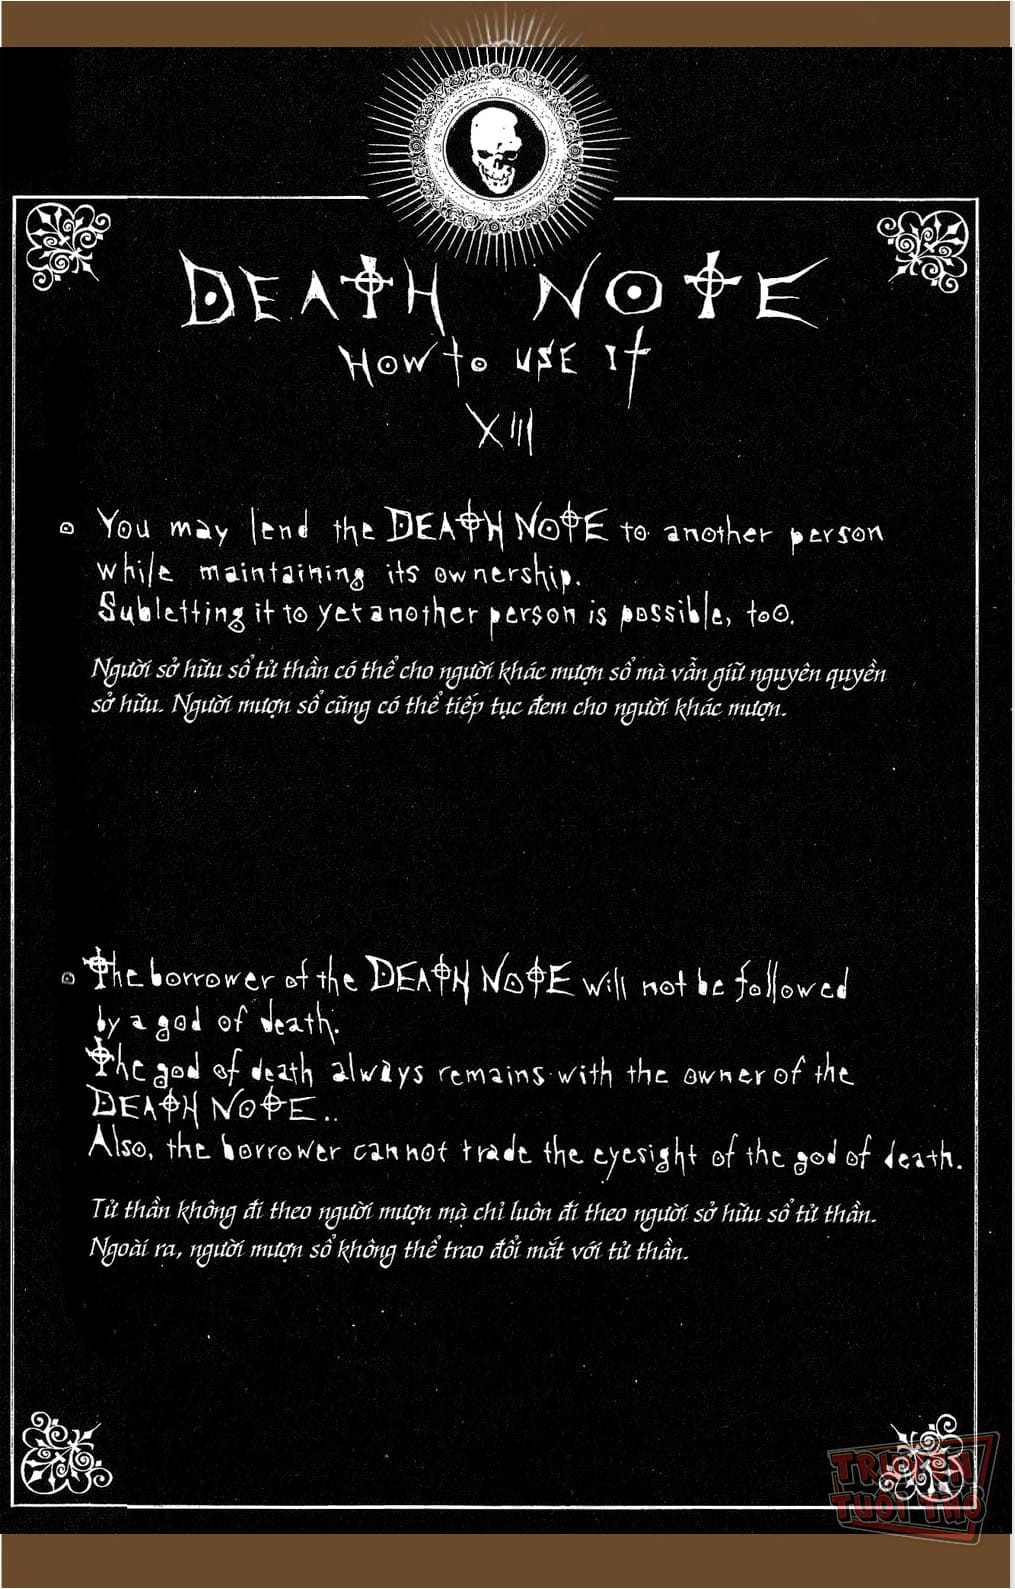 DEATH NOTE
HOW to USE It
XIII
You may lend the DEATH NOTE to another person
while maintaining its ownership.
Subletting it to yet another person is possible, too.
Người sở hữu sổ tử thần có thể cho người khác mượn sổ mà vẫn giữ nguyên quyền
sở hữu. Người mượn sổ cũng có thể tiếp tục đem cho người khác mượn.
The borrower of the DEATH NOTE will not be followed
by a god of death.
The god of death always remains with the owner of the
DEATH NOTE..
Also, the borrower cannot trade the eyesight of the god of death.
Tử thần không đi theo người mượn mà chỉ luôn đi theo người sở hữu sổ tử thần.
Ngoài ra, người mượn sổ không thể trao đổi mắt với tử thần.
TRUYỆN
TUỔI THƠ